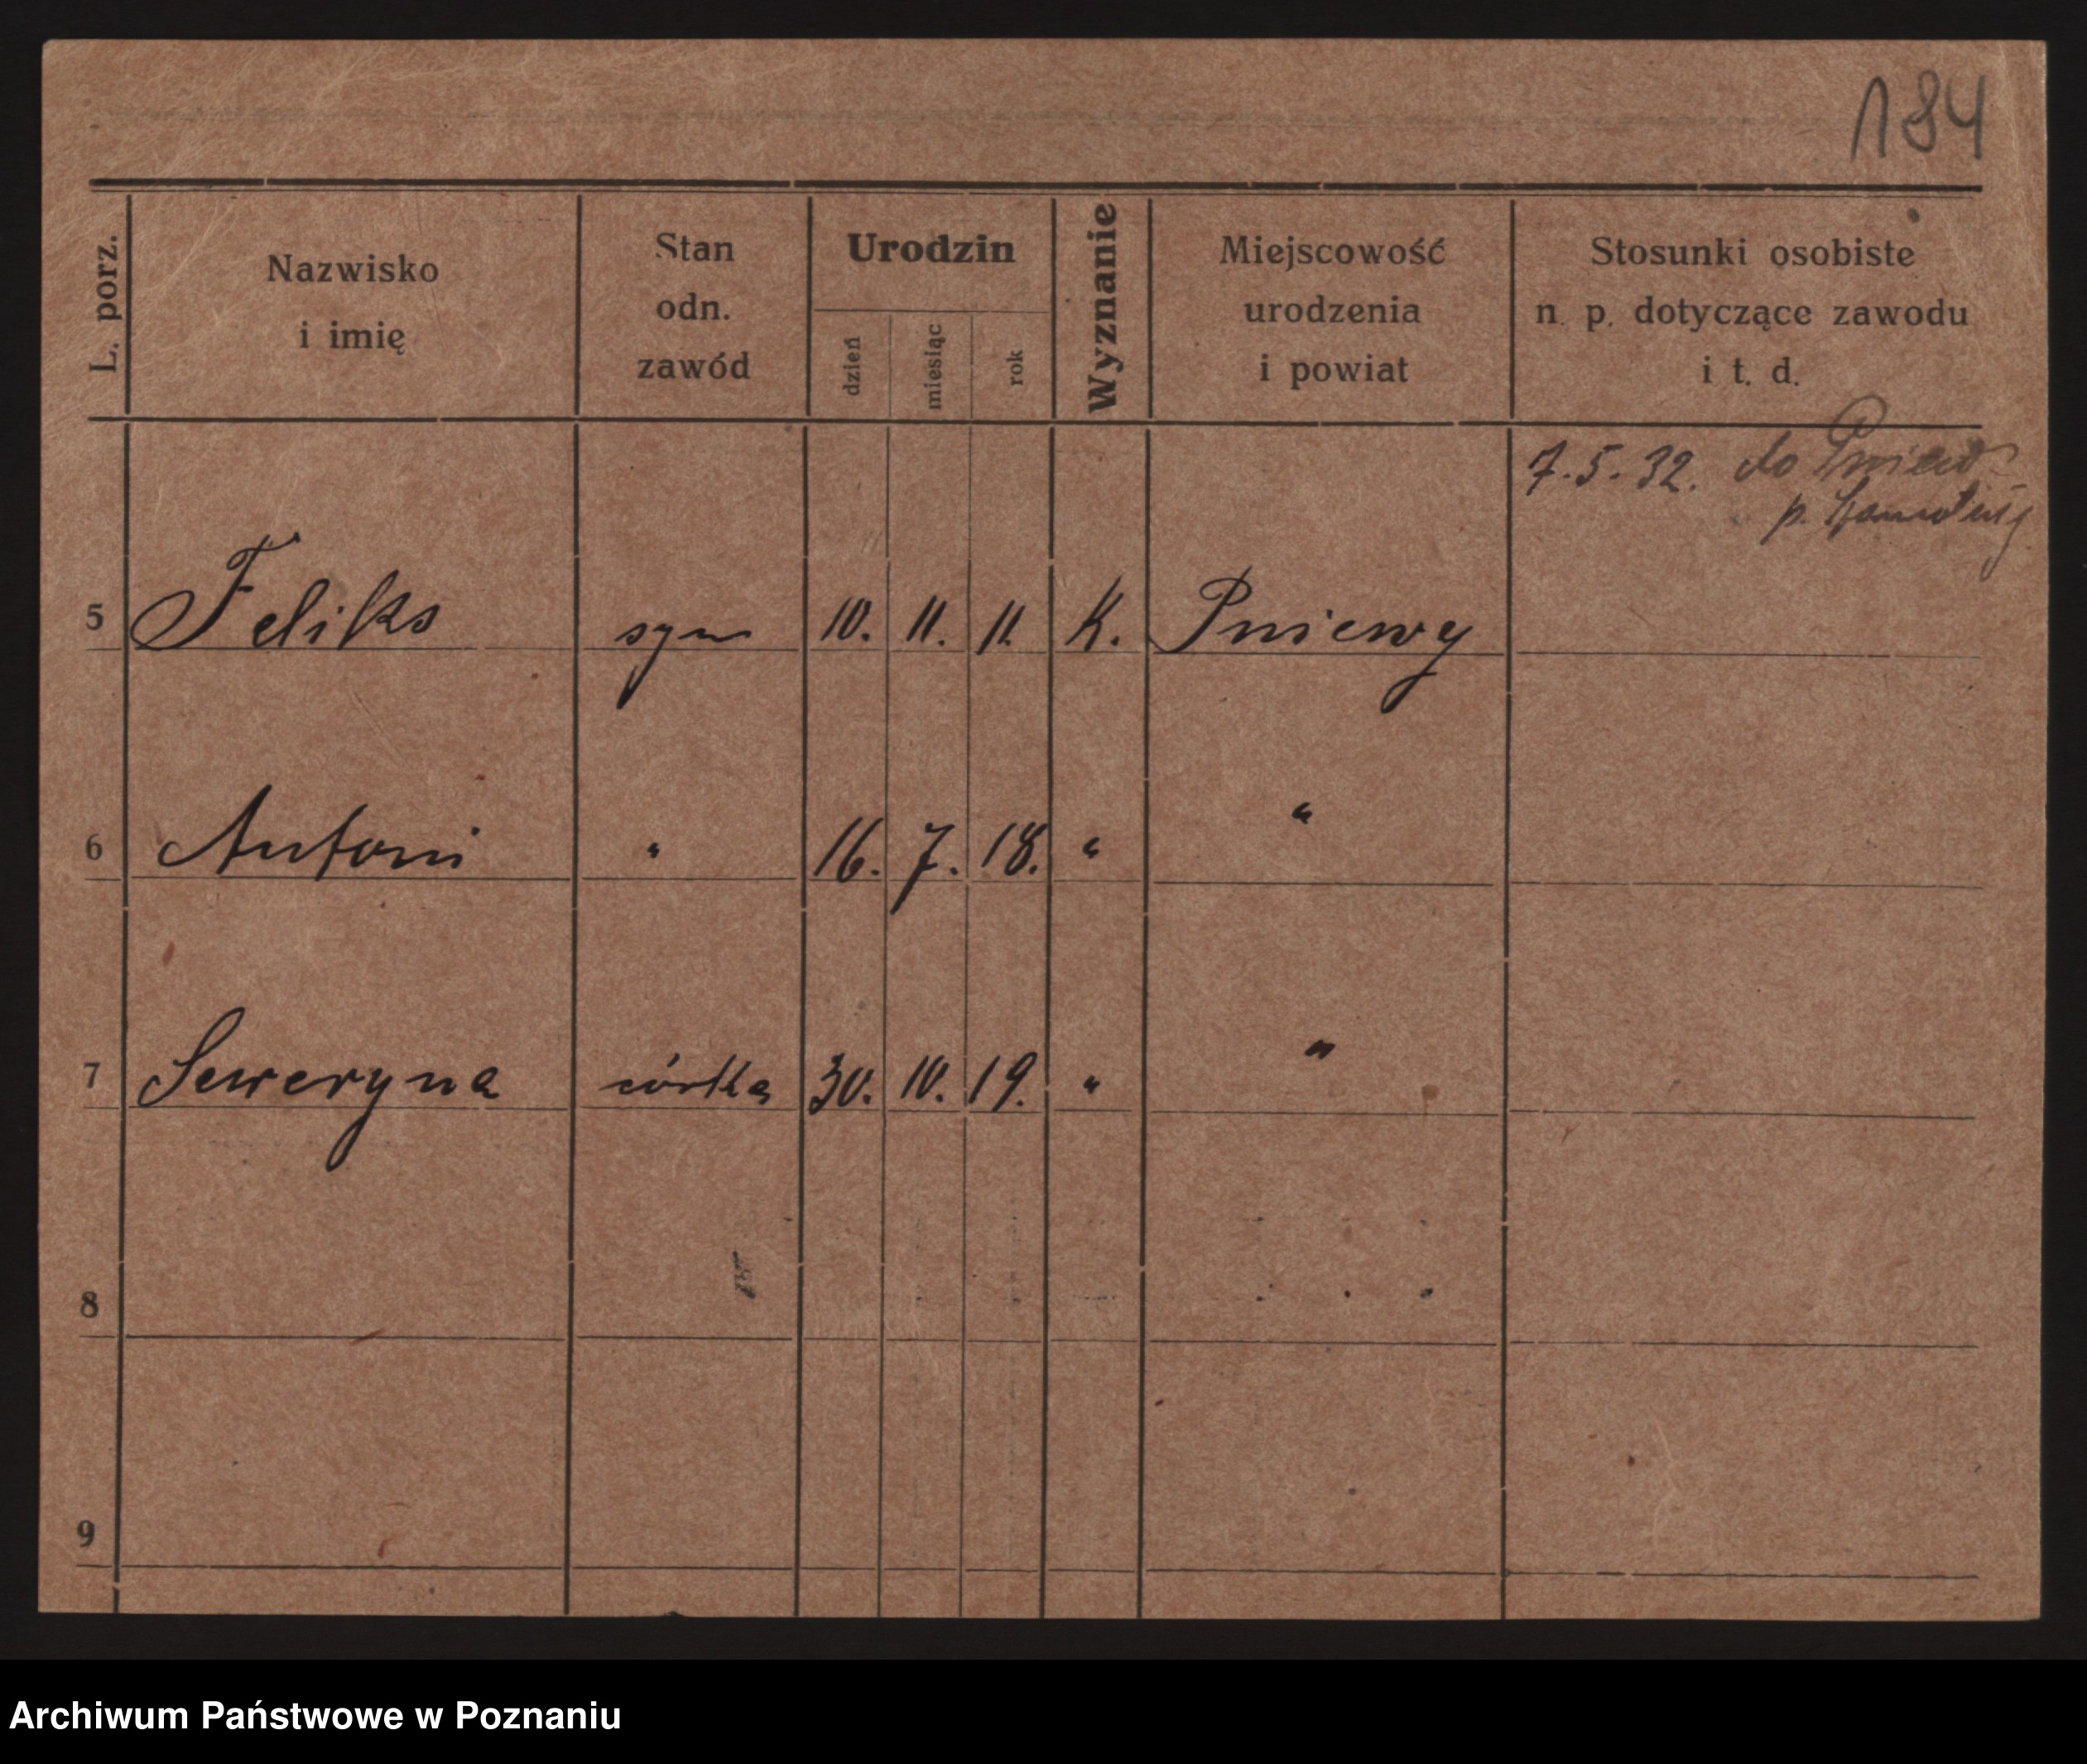 184
L. porz.
Nazwisko
i imię
Stan
odn.
zawód
Urodzin
dzień
miesiąc
rok
Wyznanie
Miejscowość
urodzenia
i powiat
Stosunki osobiste
n. p. dotyczące zawodu
i t. d.
7.5.32. do Pniew
p.
5 Feliks syn 10. 11. 11. K. Pniewy
6 Antoni " 16. 7. 18. " "
7 Seweryna córka 30. 10. 19. " "
8
9
Archiwum Państwowe w Poznaniu